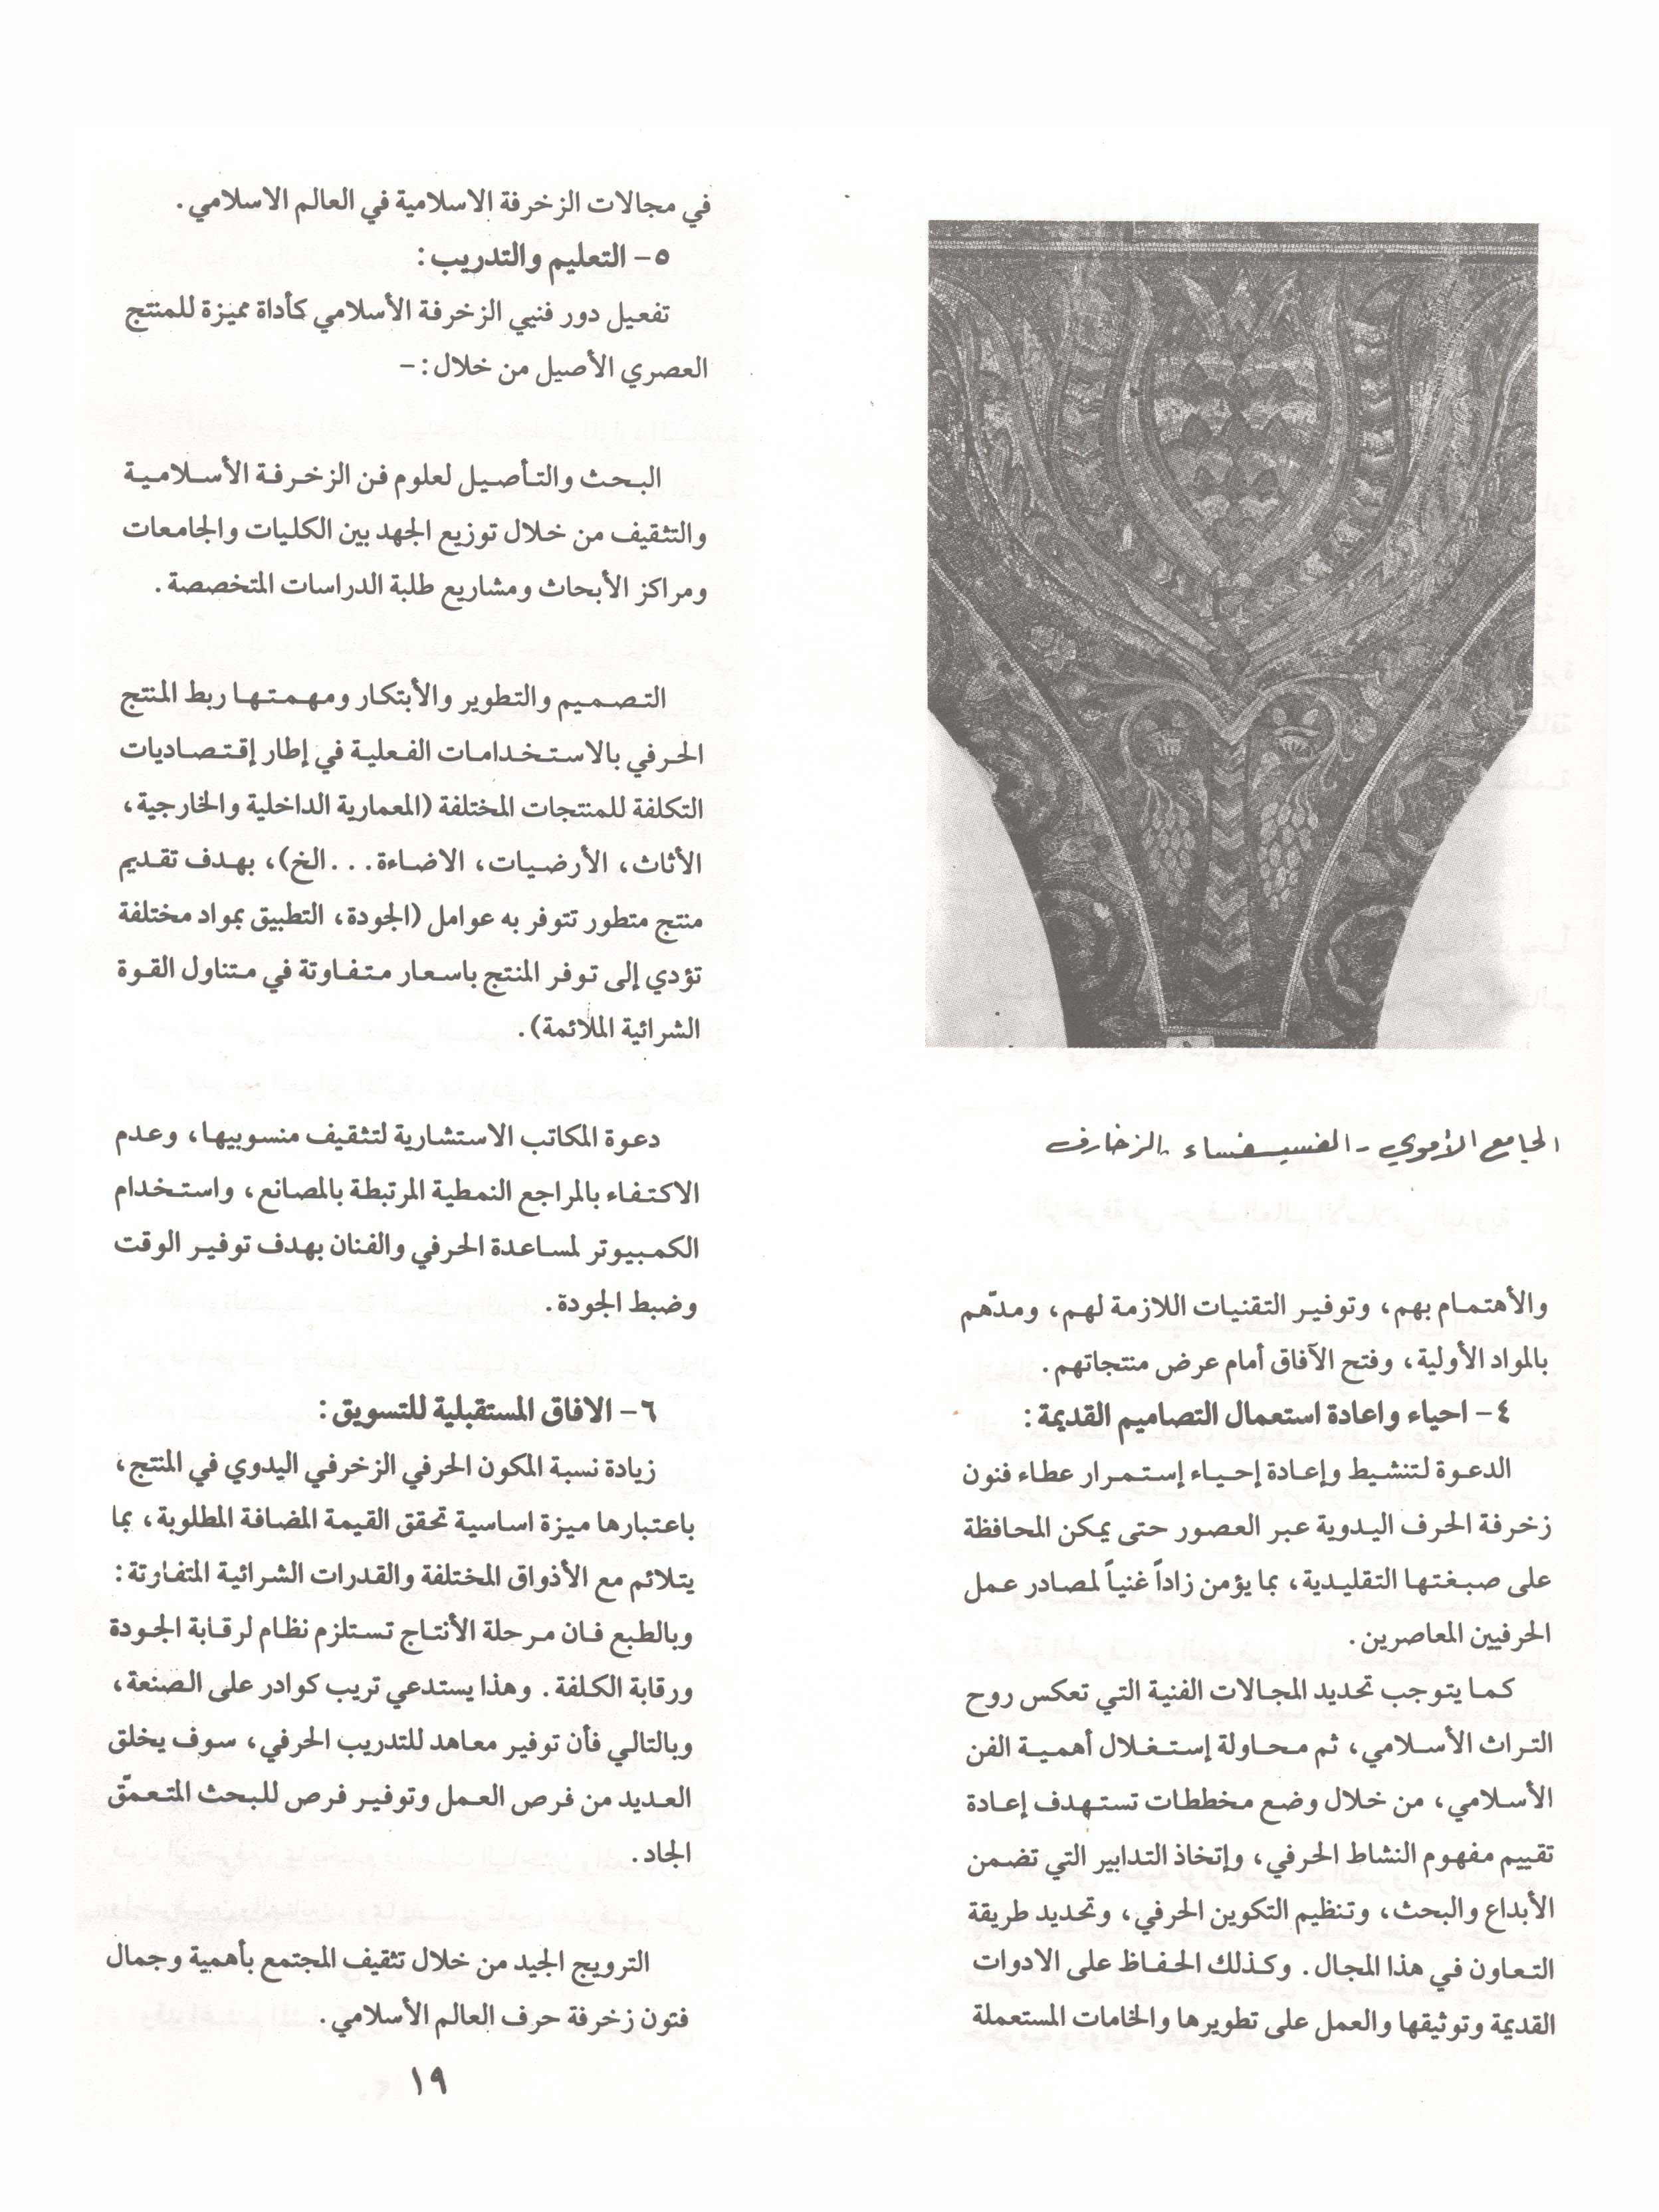 الجامع الأموي - الفسيفساء - الزخارف
والأهتمام بهم، وتوفير التقنيات اللازمة لهم، ومدّهم
بالمواد الأولية، وفتح الآفاق أمام عرض منتجاتهم.
٤- احياء واعادة استعمال التصاميم القديمة:
الدعوة لتنشيط وإعادة إحياء إستمرار عطاء فنون
زخرفة الحرف اليدوية عبر العصور حتى يمكن المحافظة
على صبغتها التقليدية، بما يؤمن زاداً غنياً لمصادر عمل
الحرفيين المعاصرين.
كما يتوجب تحديد المجالات الفنية التي تعكس روح
التراث الأسلامي، ثم محاولة إستغلال أهمية الفن
الأسلامي، من خلال وضع مخططات تستهدف إعادة
تقييم مفهوم النشاط الحرفي، وإتخاذ التدابير التي تضمن
الأبداع والبحث، وتنظيم التكوين الحرفي، وتحديد طريقة
التعاون في هذا المجال. وكذلك الحفاظ على الادوات
القديمة وتوثيقها والعمل على تطويرها والخامات المستعملة
في مجالات الزخرفة الاسلامية في العالم الاسلامي.
٥- التعليم والتدريب:
تفعيل دور فنيي الزخرفة الأسلامي كأداة مميزة للمنتج
العصري الأصيل من خلال:-
البحث والتأصيل لعلوم فن الزخرفة الأسلامية
والتثقيف من خلال توزيع الجهد بين الكليات والجامعات
ومراكز الأبحاث ومشاريع طلبة الدراسات المتخصصة.
التصميم والتطوير والأبتكار ومهمتها ربط المنتج
الحرفي بالاستخدامات الفعلية في إطار إقتصاديات
التكلفة للمنتجات المختلفة (المعمارية الداخلية والخارجية،
الأثاث، الأرضيات، الاضاءة... الخ)، بهدف تقديم
منتج متطور تتوفر به عوامل (الجودة، التطبيق بمواد مختلفة
تؤدي إلى توفر المنتج باسعار متفاوتة في متناول القوة
الشرائية الملائمة).
دعوة المكاتب الاستشارية لتثقيف منسوبيها، وعدم
الاكتفاء بالمراجع النمطية المرتبطة بالمصانع، واستخدام
الكمبيوتر لمساعدة الحرفي والفنان بهدف توفير الوقت
وضبط الجودة.
٦- الافاق المستقبلية للتسويق:
زيادة نسبة المكون الحرفي الزخرفي اليدوي في المنتج،
باعتبارها ميزة اساسية تحقق القيمة المضافة المطلوبة، بما
يتلائم مع الأذواق المختلفة والقدرات الشرائية المتفاوتة:
وبالطبع فان مرحلة الأنتاج تستلزم نظام لرقابة الجودة
ورقابة الكلفة. وهذا يستدعي تريب كوادر على الصنعة،
وبالتالي فأن توفير معاهد للتدريب الحرفي، سوف يخلق
العديد من فرص العمل وتوفير فرص للبحث المتعمّق
الجاد.
الترويج الجيد من خلال تثقيف المجتمع بأهمية وجمال
فتون زخرفة حرف العالم الأسلامي.
١٩